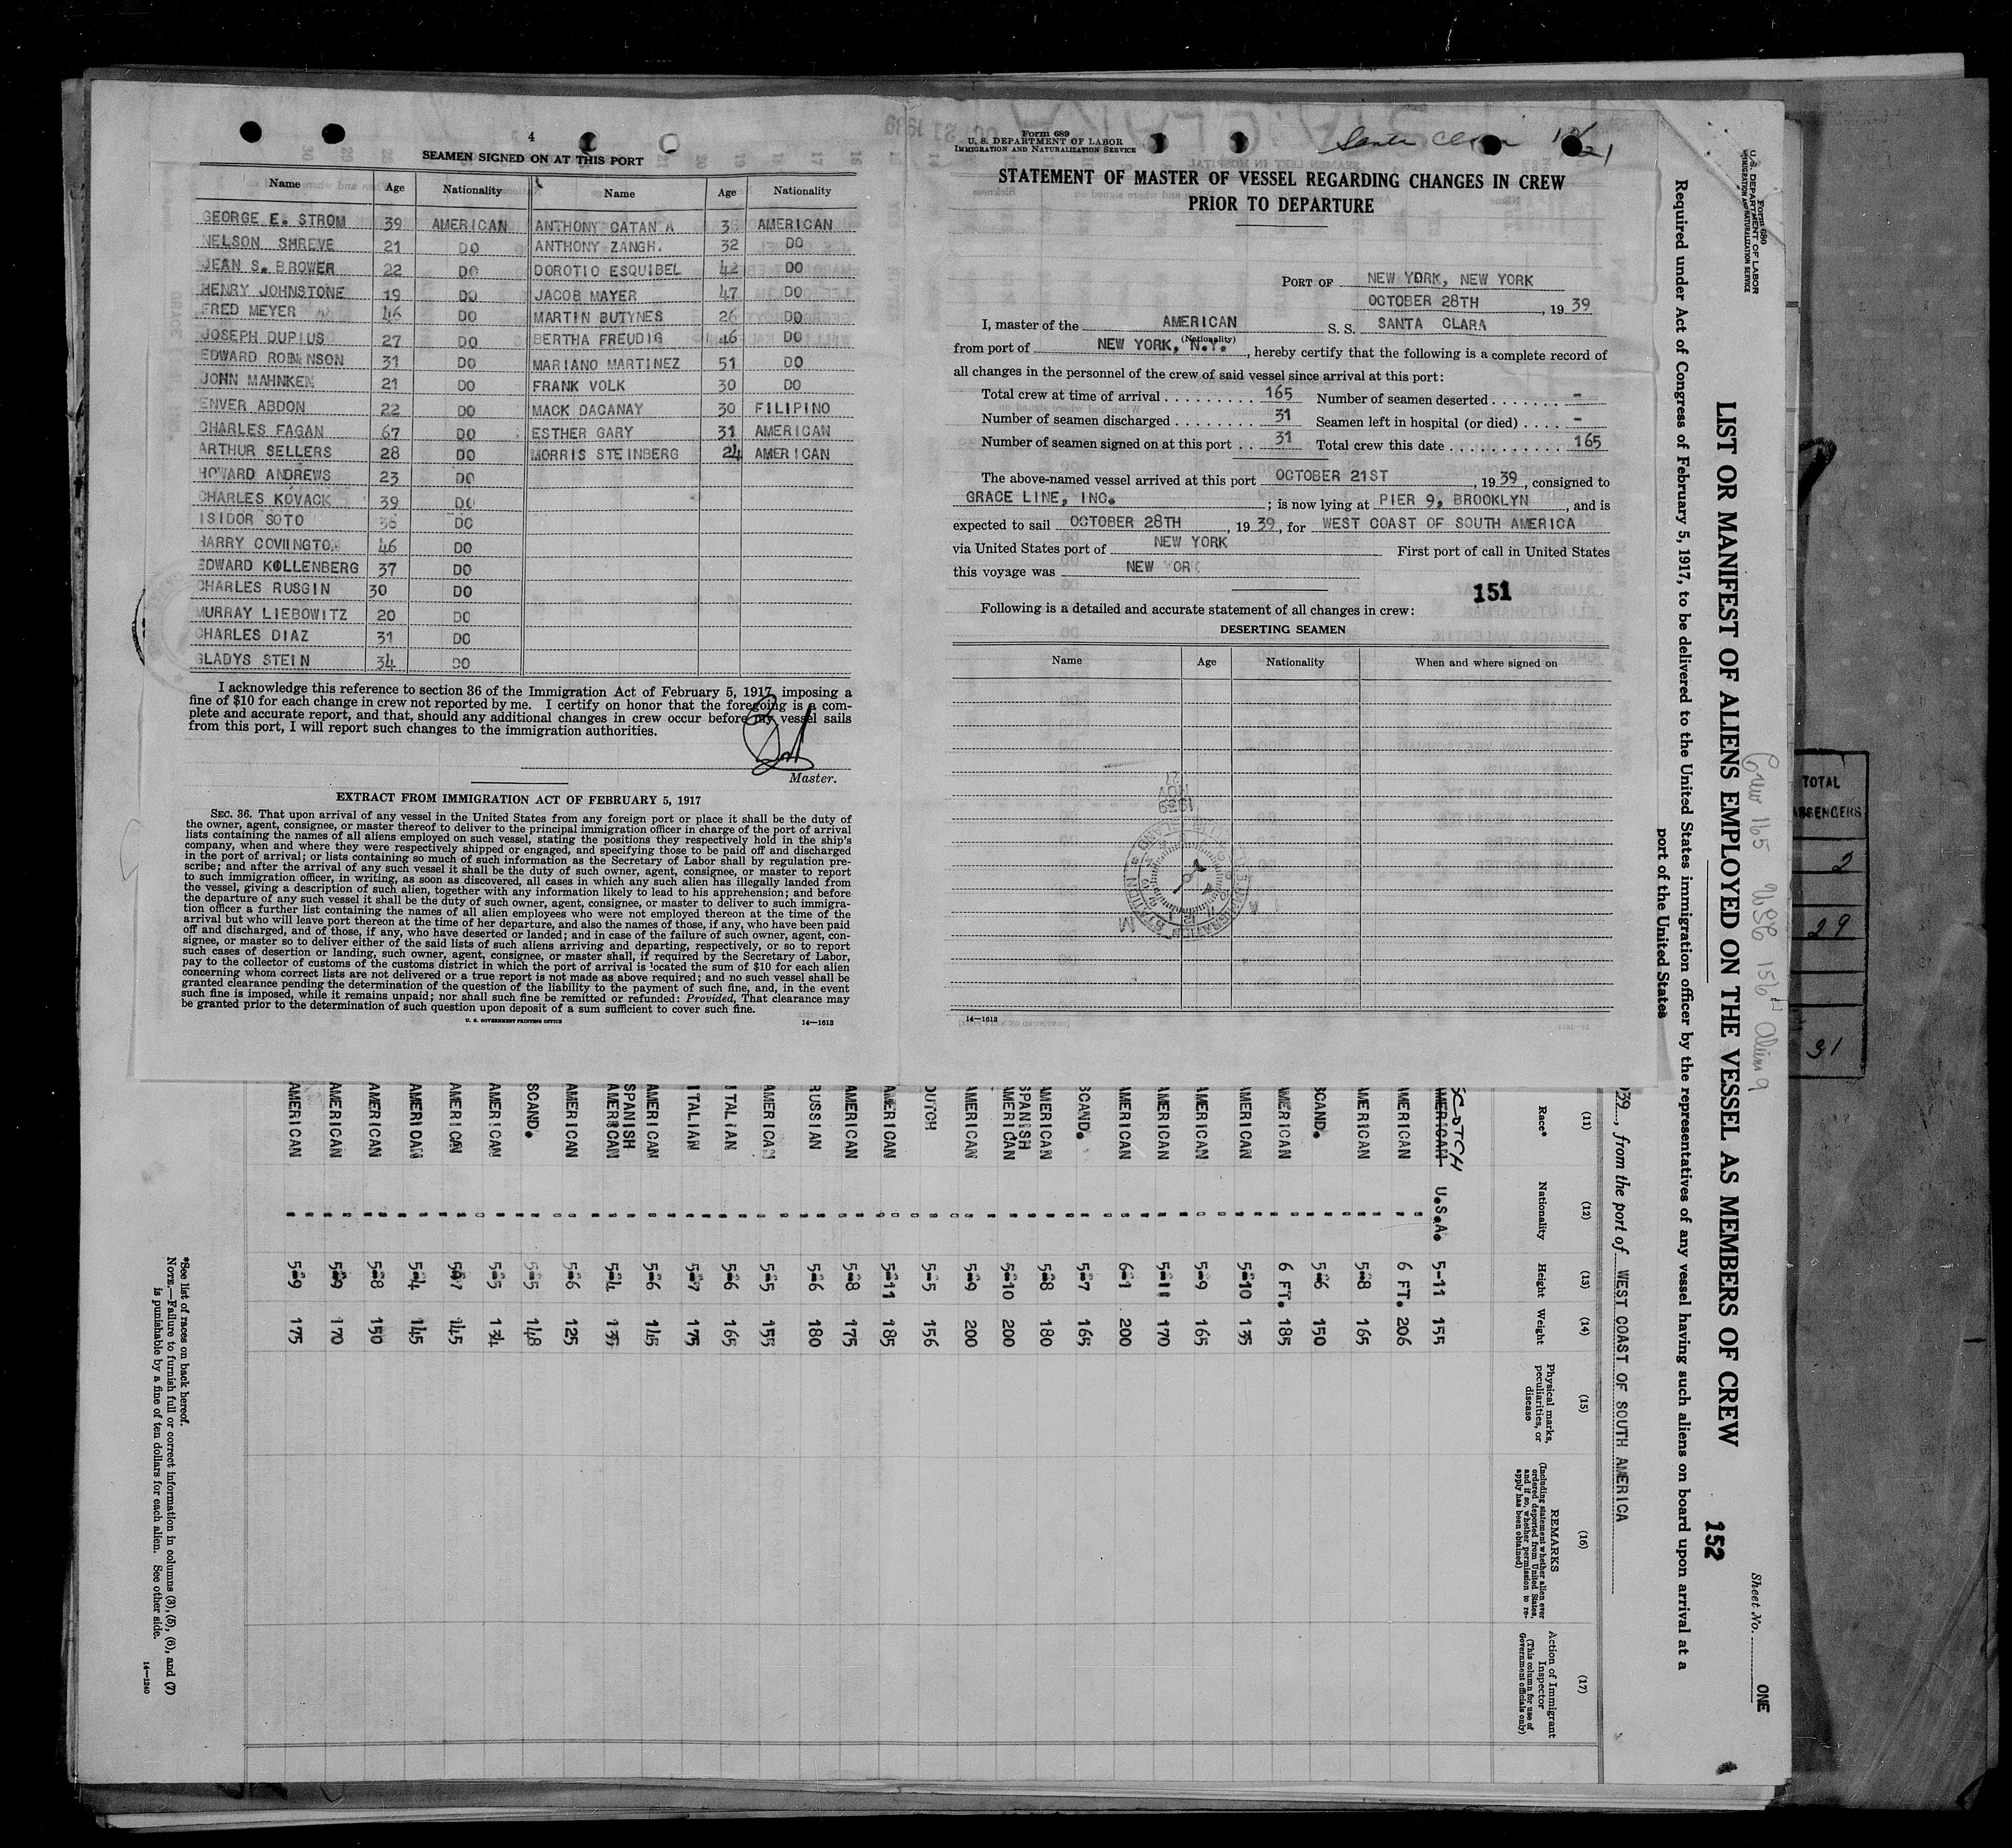 4
SEAMEN SIGNED ON AT THIS PORT
Name Age Nationality Name Age Nationality
GEORGE E. STROM 39 AMERICAN ANTHONY CATAN A 3 AMERICAN
NELSON SHREVE 21 DO ANTHONY ZANGH. 32 DO
JEAN S. BROWER 22 DO DOROTIO ESQUIBEL 42 DO
HENRY JOHNSTONE 19 DO JACOB MAYER 47 DO
FRED MEYER 46 DO MARTIN BUTYNES 26 DO
JOSEPH DUPIUS 27 DO BERTHA FREUDIG 46 DO
EDWARD ROBINSON 31 DO MARIANO MARTINEZ 51 DO
JOHN MAHNKEN 21 DO FRANK VOLK 30 DO
ENVER ABDON 22 DO MACK DACANAY 30 FILIPINO
CHARLES FAGAN 67 DO ESTHER GARY 31 AMERICAN
ARTHUR SELLERS 28 DO MORRIS STEINBERG 24 AMERICAN
HOWARD ANDREWS 23 DO
CHARLES KOVACK 39 DO
ISIDOR SOTO 36 DO
HARRY COVINGTO 46 DO
EDWARD KOLLENBERG 37 DO
CHARLES RUSGIN 30 DO
MURRAY LIEBOWITZ 20 DO
CHARLES DIAZ 31 DO
GLADYS STEIN 34 DO
I acknowledge this reference to section 36 of the Immigration Act of February 5, 1917, imposing a
fine of $10 for each change in crew not reported by me. I certify on honor that the foregoing is a com-
plete and accurate report, and that, should any additional changes in crew occur before my vessel sails
from this port, I will report such changes to the immigration authorities.
Master.
EXTRACT FROM IMMIGRATION ACT OF FEBRUARY 5, 1917
SEC. 36. That upon arrival of any vessel in the United States from any foreign port or place it shall be the duty of
the owner, agent, consignee, or master thereof to deliver to the principal immigration officer in charge of the port of arrival
lists containing the names of all aliens employed on such vessel, stating the positions they respectively hold in the ship's
company, when and where they were respectively shipped or engaged, and specifying those to be paid off and discharged
in the port of arrival; or lists containing so much of such information as the Secretary of Labor shall by regulation pre-
scribe; and after the arrival of any such vessel it shall be the duty of such owner, agent, consignee, or master to report
to such immigration officer, in writing, as soon as discovered, all cases in which any such alien has illegally landed from
the vessel, giving a description of such alien, together with any information likely to lead to his apprehension; and before
the departure of any such vessel it shall be the duty of such owner, agent, consignee, or master to deliver to such immigra-
tion officer a further list containing the names of all alien employees who were not employed thereon at the time of the
arrival but who will leave port thereon at the time of her departure, and also the names of those, if any, who have been paid
off and discharged, and of those, if any, who have deserted or landed; and in case of the failure of such owner, agent, con-
signee, or master so to deliver either of the said lists of such aliens arriving and departing, respectively, or so to report
such cases of desertion or landing, such owner, agent, consignee, or master shall, if required by the Secretary of Labor,
pay to the collector of customs of the customs district in which the port of arrival is located the sum of $10 for each alien
concerning whom correct lists are not delivered or a true report is not made as above required; and no such vessel shall be
granted clearance pending the determination of the question of the liability to the payment of such fine, and, in the event
such fine is imposed, while it remains unpaid; nor shall such fine be remitted or refunded: Provided, That clearance may
be granted prior to the determination of such question upon deposit of a sum sufficient to cover such fine.
U. S. GOVERNMENT PRINTING OFFICE 14—1613
Form 689
U. S. DEPARTMENT OF LABOR
IMMIGRATION AND NATURALIZATION SERVICE
Santa Clara 10/21
STATEMENT OF MASTER OF VESSEL REGARDING CHANGES IN CREW
PRIOR TO DEPARTURE
PORT OF NEW YORK, NEW YORK
OCTOBER 28TH, 1939
I, master of the AMERICAN S. S. SANTA CLARA
(Nationality)
from port of NEW YORK, N.Y., hereby certify that the following is a complete record of
all changes in the personnel of the crew of said vessel since arrival at this port:
Total crew at time of arrival 165 Number of seamen deserted -
Number of seamen discharged 31 Seamen left in hospital (or died) -
Number of seamen signed on at this port 31 Total crew this date 165
The above-named vessel arrived at this port OCTOBER 21ST, 1939, consigned to
GRACE LINE, INC. ; is now lying at PIER 9, BROOKLYN, and is
expected to sail OCTOBER 28TH, 1939, for WEST COAST OF SOUTH AMERICA
via United States port of NEW YORK First port of call in United States
this voyage was NEW YOR
151
Following is a detailed and accurate statement of all changes in crew:
DESERTING SEAMEN
Name Age Nationality When and where signed on
14—1613
Form 680
U. S. DEPARTMENT OF LABOR
IMMIGRATION AND NATURALIZATION SERVICE
Sheet No. ONE
Crew 165 USC 156 Alien 9
LIST OR MANIFEST OF ALIENS EMPLOYED ON THE VESSEL AS MEMBERS OF CREW 152
Required under Act of Congress of February 5, 1917, to be delivered to the United States immigration officer by the representatives of any vessel having such aliens on board upon arrival at a
port of the United States
39, from the port of WEST COAST OF SOUTH AMERICA
(11) (12) (13) (14) (15) (16) (17)
Race* Nationality Height Weight Physical marks, peculiarities, or disease REMARKS (Including statement whether alien ever ordered deported from United States, and if so, whether permission to re-apply has been obtained) Action of Immigrant Inspector (This column for use of Government officials only)
SCOTCH
AMERICAN U.S.A. 5-11 155
AMERICAN " 6 FT. 206
AMERICAN " 5-8 165
SCAND. " 5-6 150
AMERICAN " 6 FT. 185
AMERICAN " 5-10 135
AMERICAN " 5-9 165
AMERICAN " 5-11 170
AMERICAN " 6-1 200
SCAND. " 5-7 165
AMERICAN " 5-8 180
SPANISH
AMERICAN " 5-10 200
AMERICAN " 5-9 200
DUTCH " 5-5 156
AMERICAN " 5-11 185
AMERICAN " 5-8 175
RUSSIAN " 5-6 180
AMERICAN " 5-5 155
ITALIAN " 5-6 165
ITALIAN " 5-7 175
AMERICAN " 5-6 145
SPANISH
AMERICAN " 5-4 135
AMERICAN " 5-6 125
SCAND. " 5-5 148
AMERICAN " 5-3 134
AMERICAN " 5-7 145
AMERICAN " 5-4 145
AMERICAN " 5-8 150
AMERICAN " 5-9 170
AMERICAN " 5-9 175
*See list of races on back hereof.
NOTE.—Failure to furnish full or correct information in columns (3), (5), (6), and (7)
is punishable by a fine of ten dollars for each alien. See other side.
14—1240
TOTAL
2
29
31